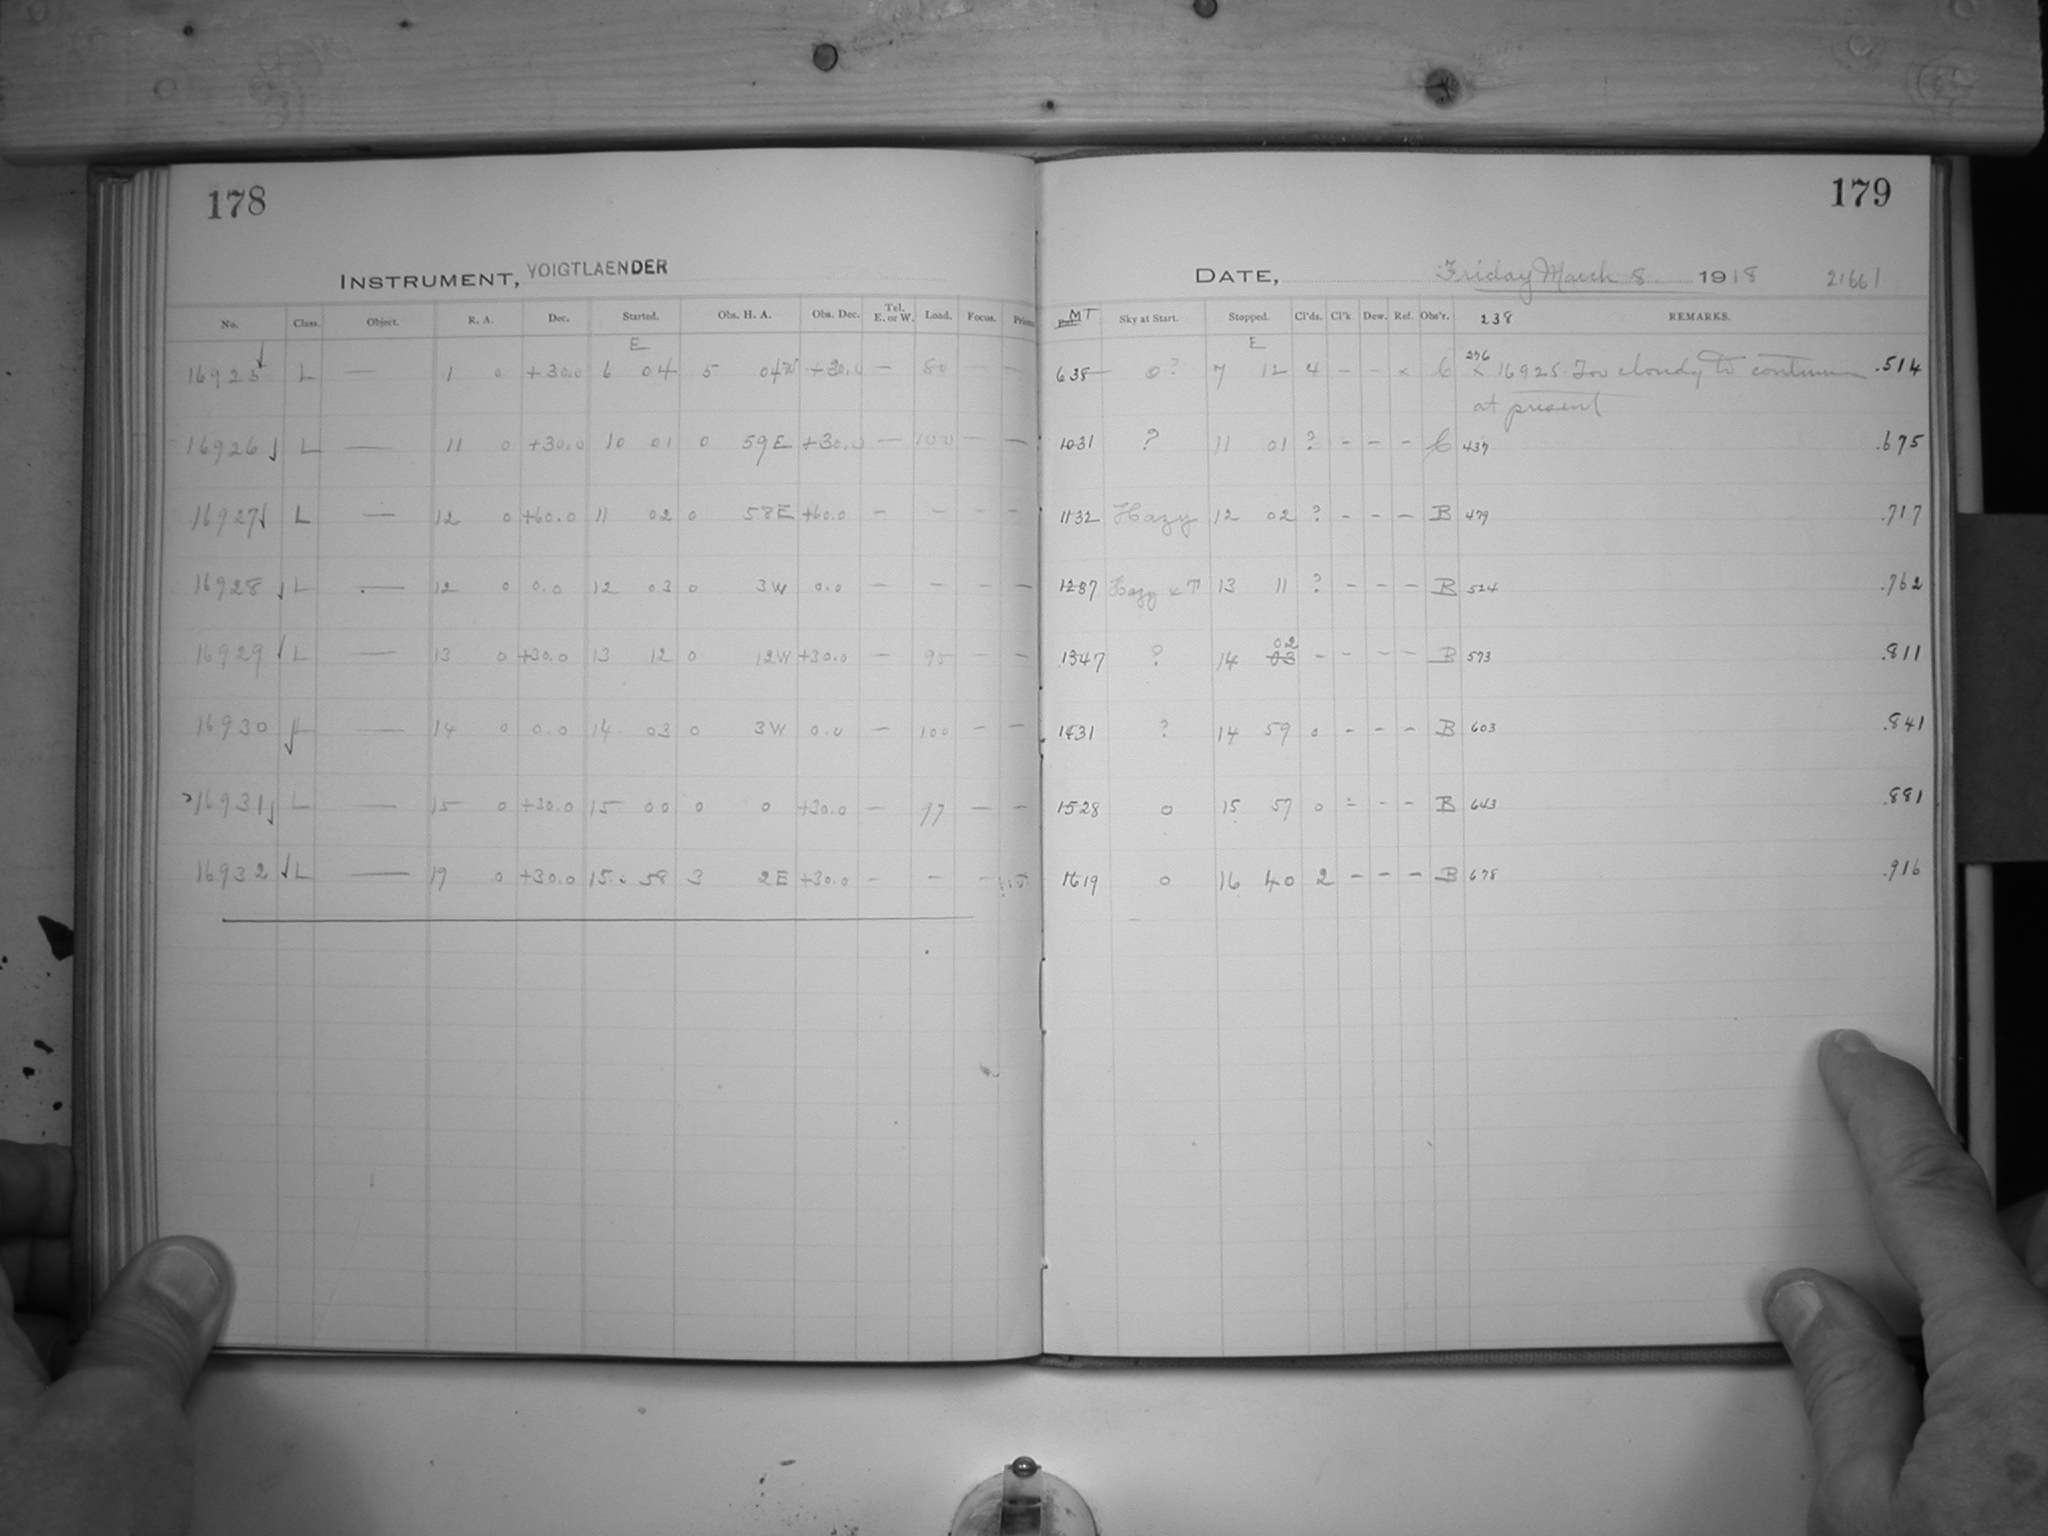 178
INSTRUMENT, VOIGTLAENDER
No. Class. Object. R. A. Dec. Started. Obs. H. A. Obs. Dec. Tel. E. or W. Load. Focus.
E
16925 L — 1 0 +30.0 6 04 5 04W +30.0 — 80 — —
16926 L — 11 0 +30.0 10 01 0 59E +30.0 — 100 — —
16927 L — 12 0 +60.0 11 02 0 58E +60.0 — — — —
16928 L — 12 0 0.0 12 03 0 3W 0.0 — — — —
16929 L — 13 0 +30.0 13 12 0 12W +30.0 — 95 — —
16930 L — 14 0 0.0 14 03 0 3W 0.0 — 100 — —
16931 L — 15 0 +30.0 15 00 0 0 +30.0 — 97 — —
16932 L — 19 0 +30.0 15 58 3 2E +30.0 — — —
179
DATE, Friday March 8 1918 21661
MT Sky at Start. Stopped. Cl'ds. Cl'k Dew. Ref. Obs'r. 238 REMARKS.
E
638 0? 7 12 4 - - x C 276 x 16925 Too cloudy to continue .514
at present
1031 ? 11 01 ? - - - C 437 .675
1132 Hazy 12 02 ? - - - B 479 .717
1237 Hazy 13 11 ? - - - B 524 .762
1347 ? 14 03 02 - - - - B 573 .811
1431 ? 14 59 0 - - - B 603 .841
1528 0 15 57 0 - - - B 643 .881
1619 0 16 40 2 - - - B 678 .916